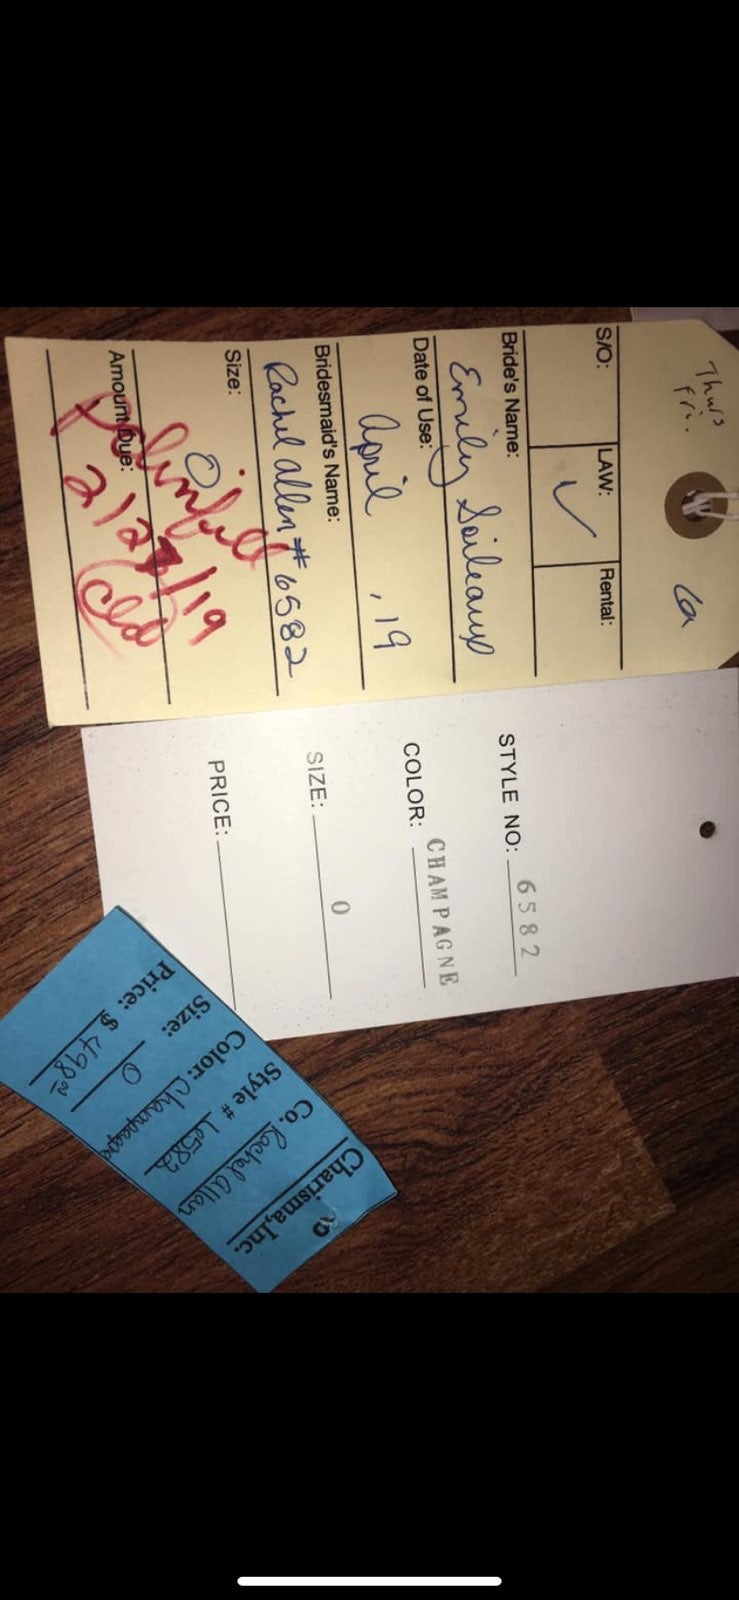 Thurs
Fri..
S/O:
LAW: ✓
Rental:
Bride's Name:
Emily Soileaux
Date of Use:
April , 19
Bridesmaid's Name:
Rachel Allen # 6582
Size:
0
Amount Due:
2/23/19
STYLE NO: 6582
COLOR: CHAMPAGNE
SIZE: 0
PRICE:
Charisma, Inc.
Co. Rachel Allan
Style # 6582
Color: Champagne
Size: 0
Price: $ 498